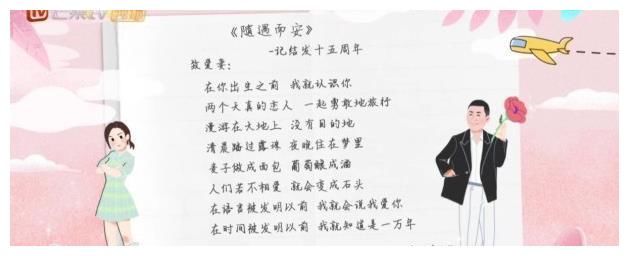 芒果TV
《随遇而安》
-记结发十五周年
致爱妻：
在你出生之前 我就认识你
两个天真的恋人 一起勇敢地旅行
漫游在大地上 没有目的地
清晨踏过露珠 夜晚住在梦里
麦子做成面包 葡萄酿成酒
人们若不相爱 就会变成石头
在语言被发明以前 我就会说我爱你
在时间被发明以前 我就知道是一万年